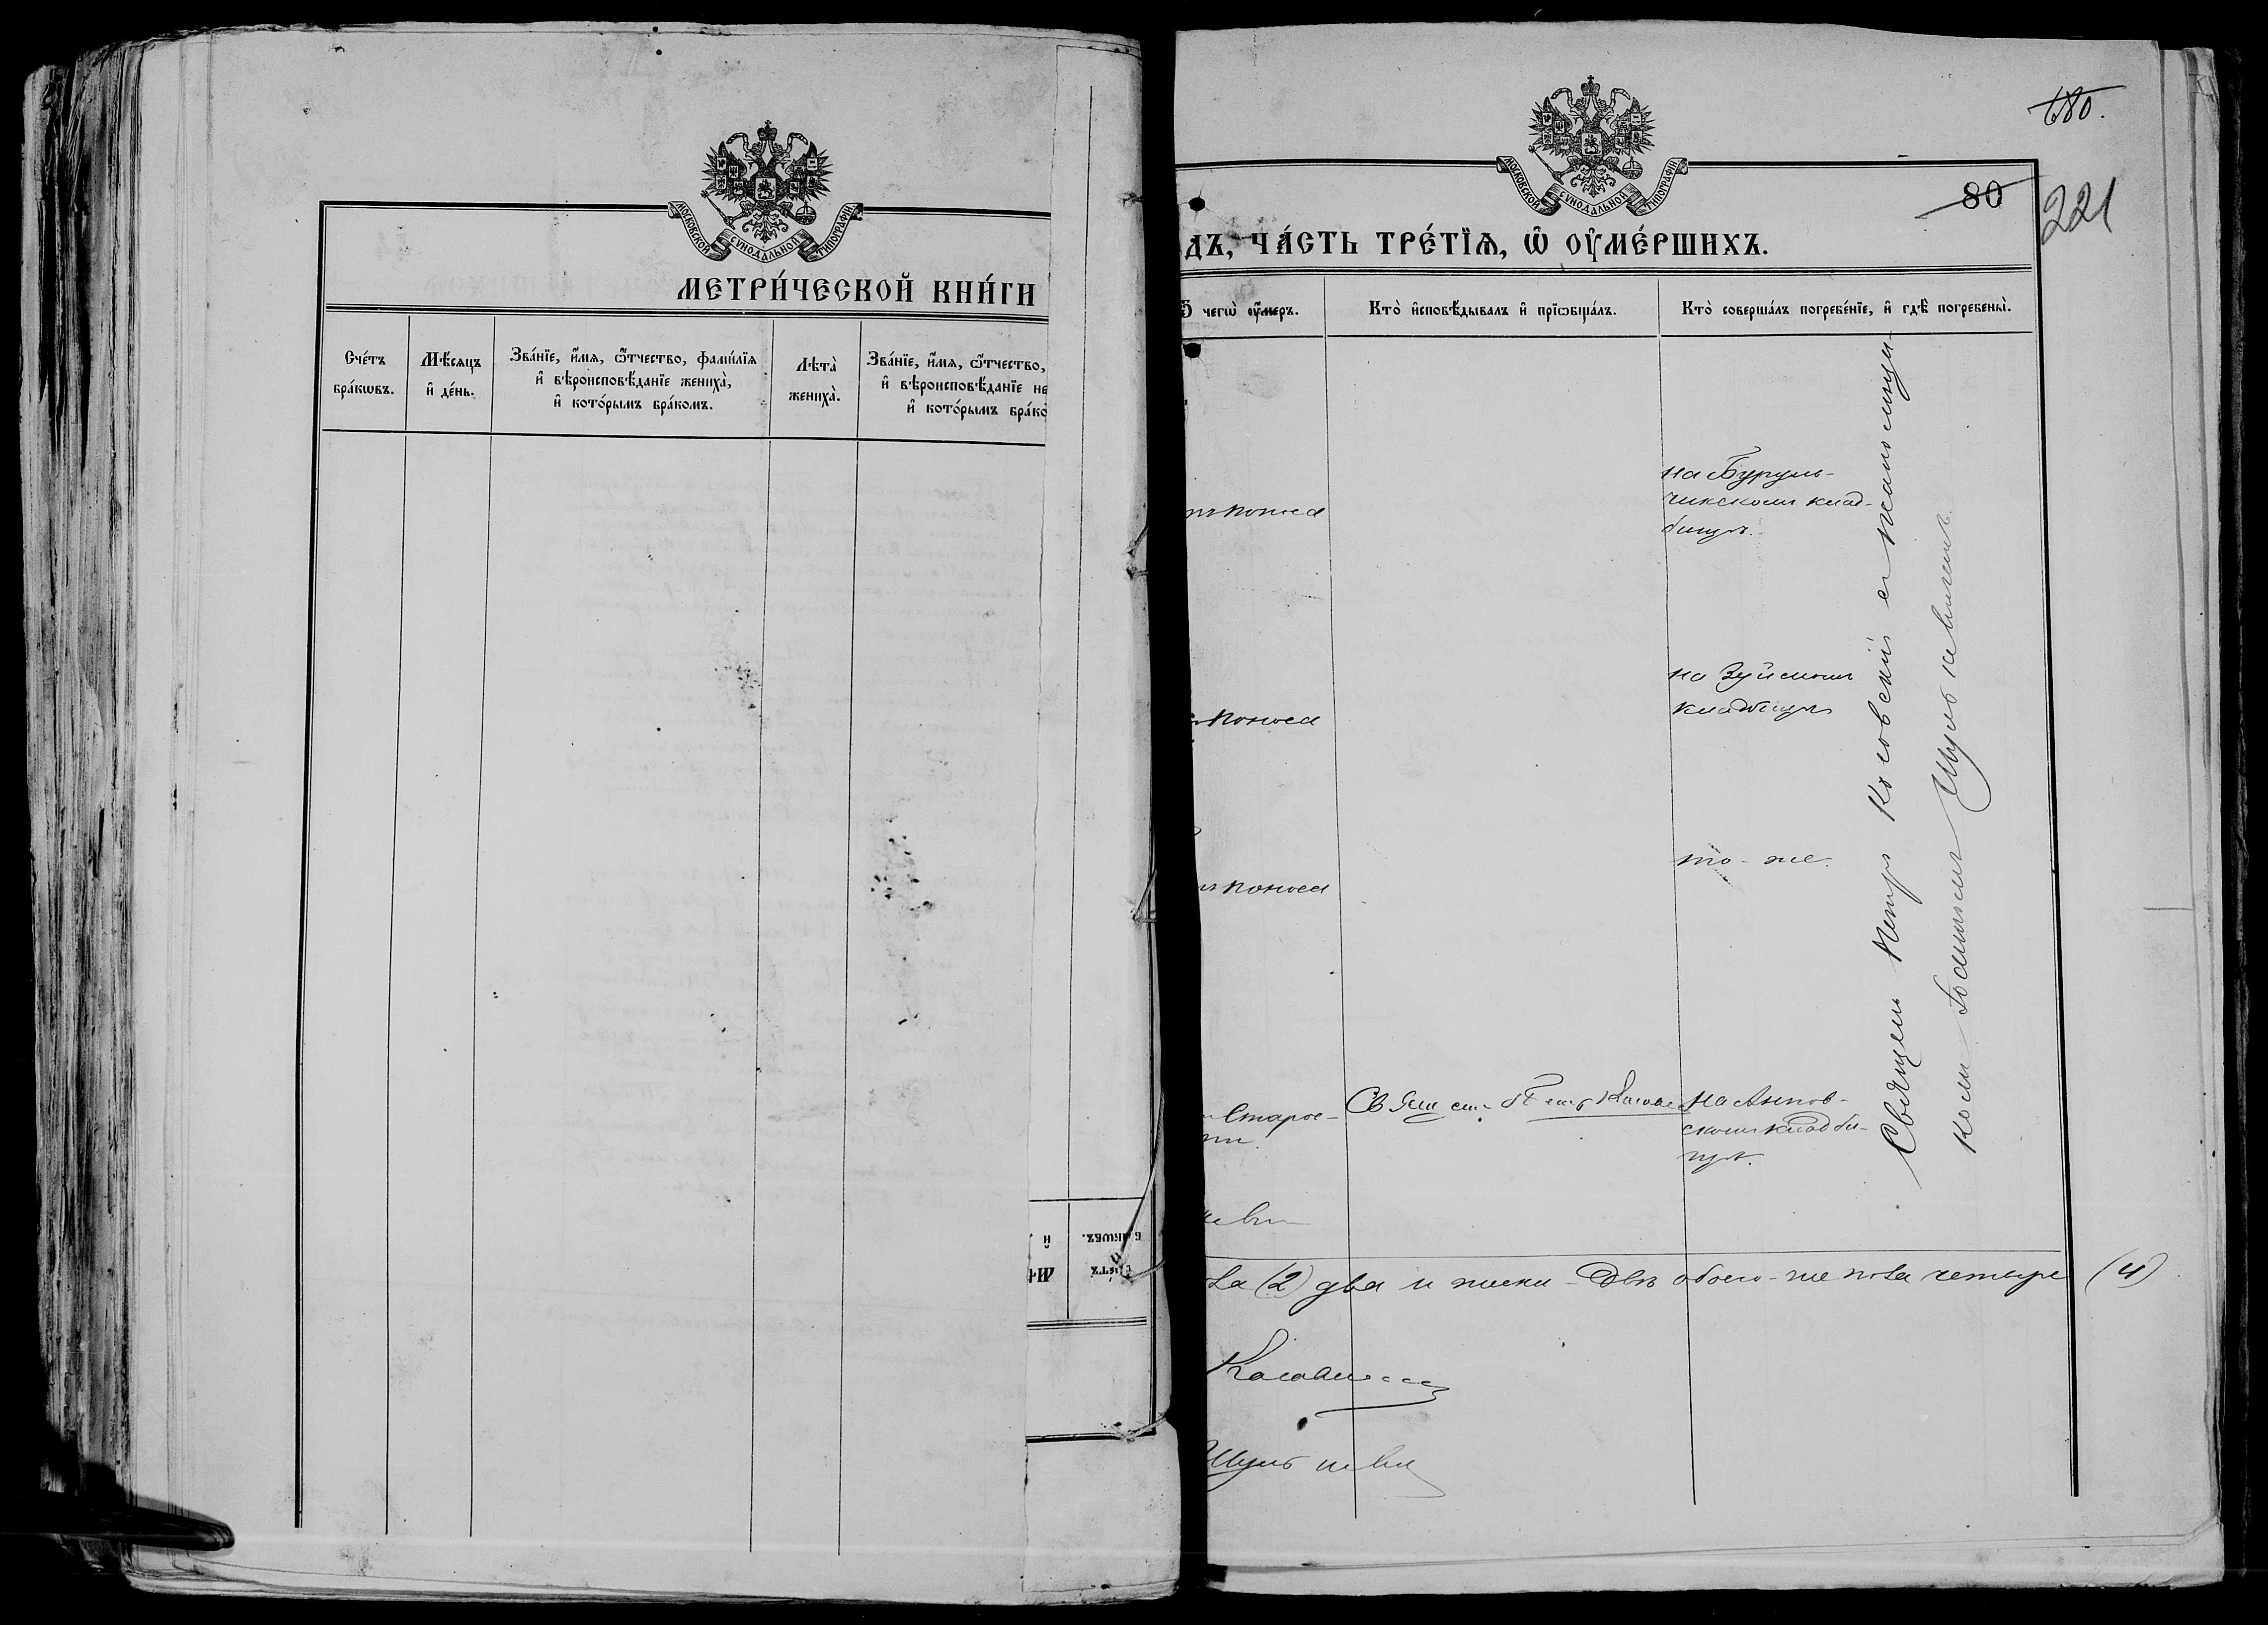 МОСКОВСКОЙ СУНОДАЛЬНОЙ ТИПОГРАФІИ
МЕТРИ́ЧЕСКОЙ КНИ́ГИ
Сче́тъ бра́кωвъ.
Мѣ́сяцъ и҆ де́нь.
Зва́нїе, и҆́мя, ѻ҆́тчество, фами́лїя
и҆ вѣроисповѣ́данїе жениха̀,
и҆ кото́рымъ бра́комъ.
Лѣта̀
жениха̀.
Зва́нїе, и҆́мя, ѻ҆́тчество,
и҆ вѣроисповѣ́данїе не
и҆ кото́рымъ бра́ко
680.
МОСКОВСКОЙ СУНОДАЛЬНОЙ ТИПОГРАФІИ
80
221
дъ, ча́сть тре́тїѧ, ѡ҆ ᲂу҆ме́ршихъ.
Ѿ чегѡ̀ ᲂу҆́меръ.
Кто̀ и҆сповѣ́дывалъ и҆ прїωбща́лъ.
Кто̀ соверша́лъ погребе́нїе, и҆ гдѣ̀ погребены̀.
на Бурул-
чикскомъ клад-
бищѣ.
поноса
на Зуйскомъ
кладбищѣ
поноса
то-же.
поноса
Старос-
ти.
на
скомъ кладби-
щѣ.
Священ Петръ Косовскій съ псаломщи-
комъ
ла (2) два и женс Двѣ обоего-же пола четыре (4)